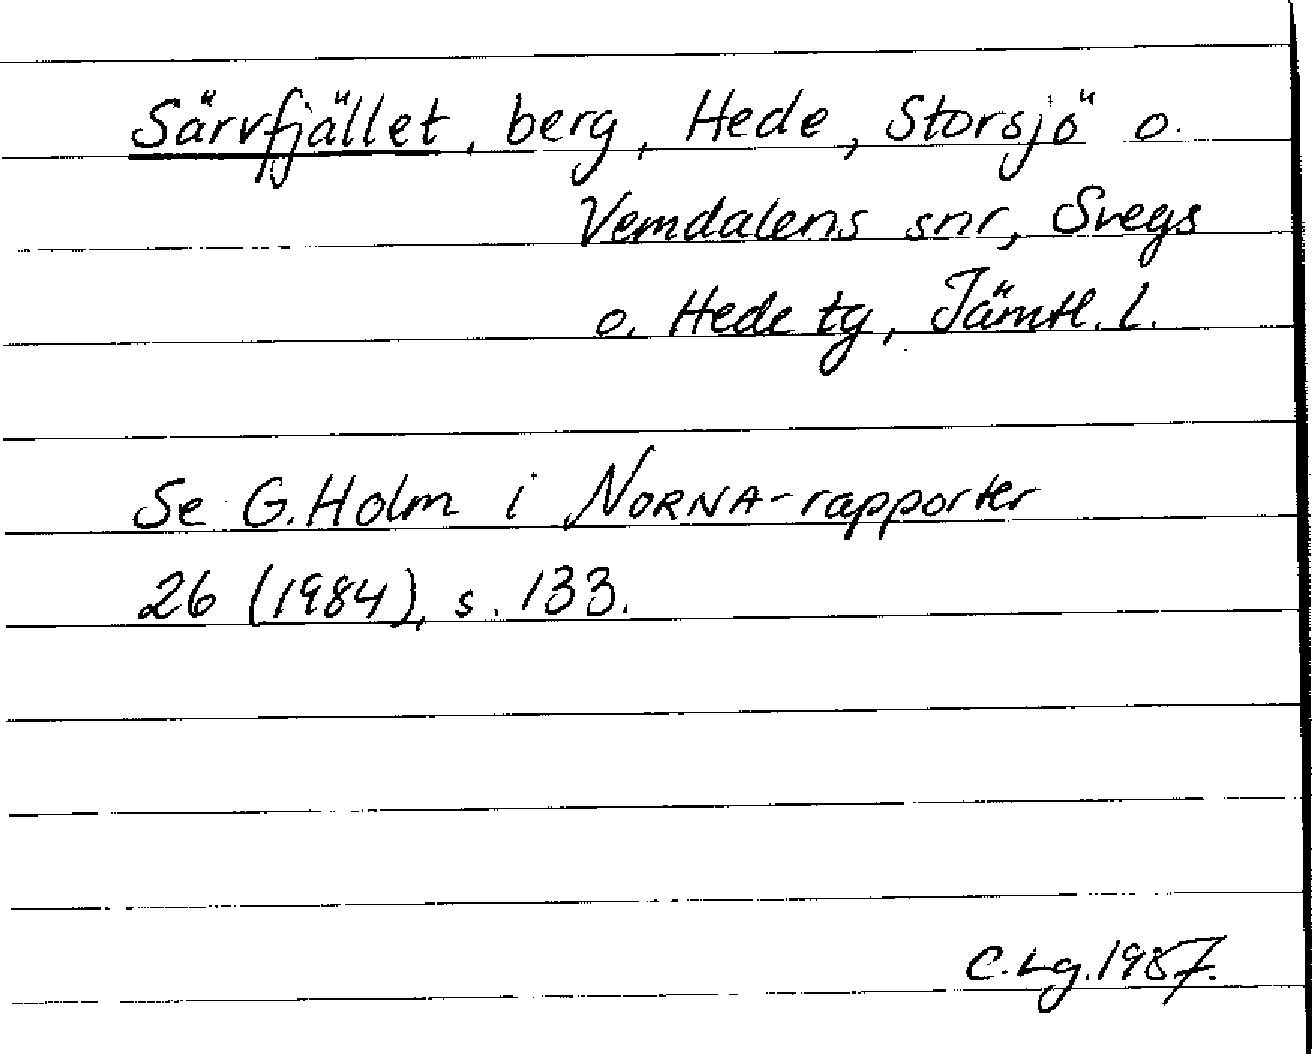 Särvfjället, berg, Hede, Storsjö o.
Vemdalens snr, Svegs
o. Hede tg, Jämtl. l.
Se G. Holm i NORNA-rapporter
26 (1984), s. 133.
C. Lg. 1987.